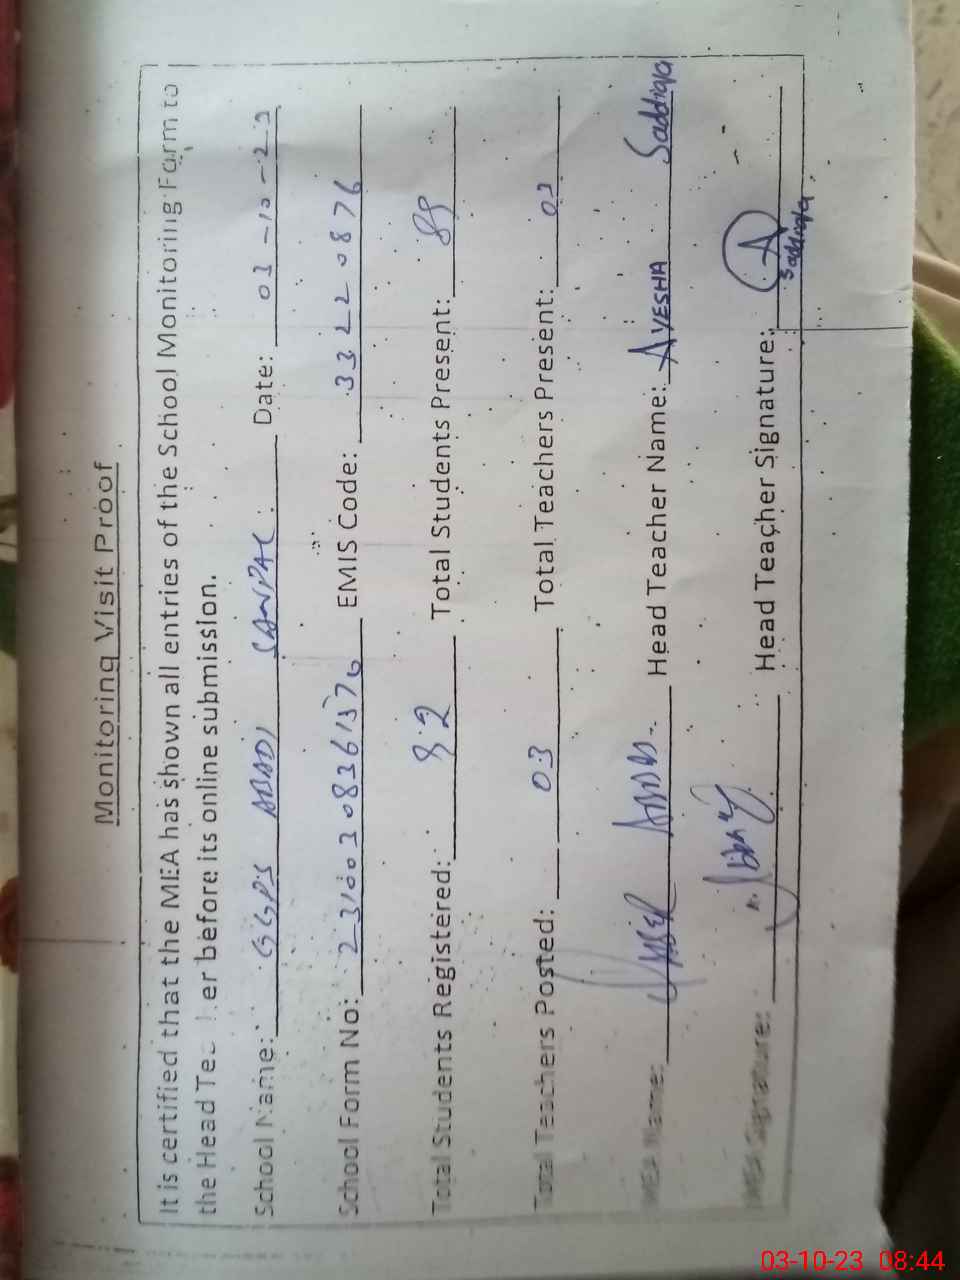 Monitoring Visit Proof
It is certified that the MEA has shown all entries of the School Monitoring Form to
the Head Teacher before its online submission.
School Name: GGPS ABADI SANPAL Date: 03-10-23
School Form No: EMIS Code: 33220876
Total Students Registered: 92 Total Students Present: 89
Total Teachers Posted: 03 Total Teachers Present: 03
MEA Name: ABBAS. Head Teacher Name: AYESHA Saddiqa
MEA Signature: Head Teacher Signature: A
Saddiqa
03-10-23 08:44